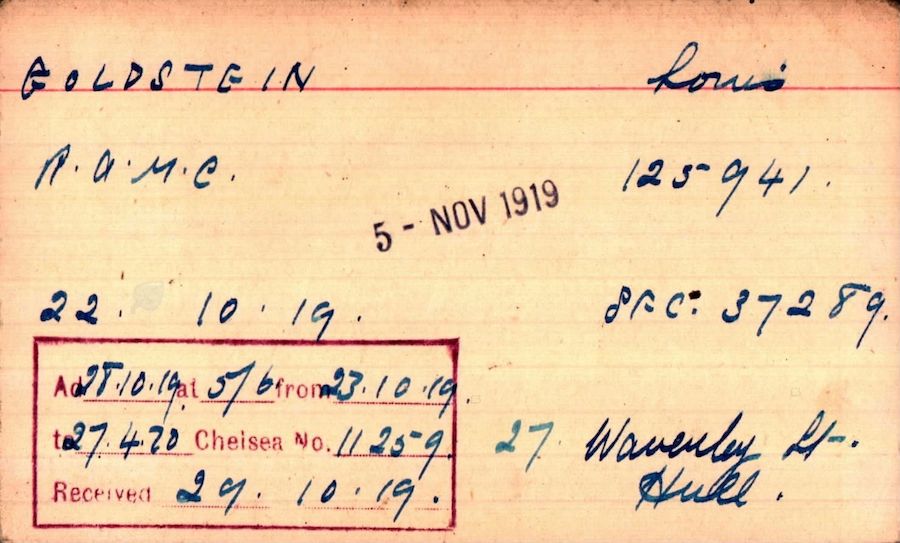 GOLDSTEIN Louis
R.A.M.C. 125941.
5 - NOV 1919
22. 10. 19. SEC. 37289.
Ad 28.10.19 at 5/6 from 23.10.19.
to 27.4.20 Chelsea No. 11259.
Received 29. 10. 19.
27 Waverley St.
Hull.